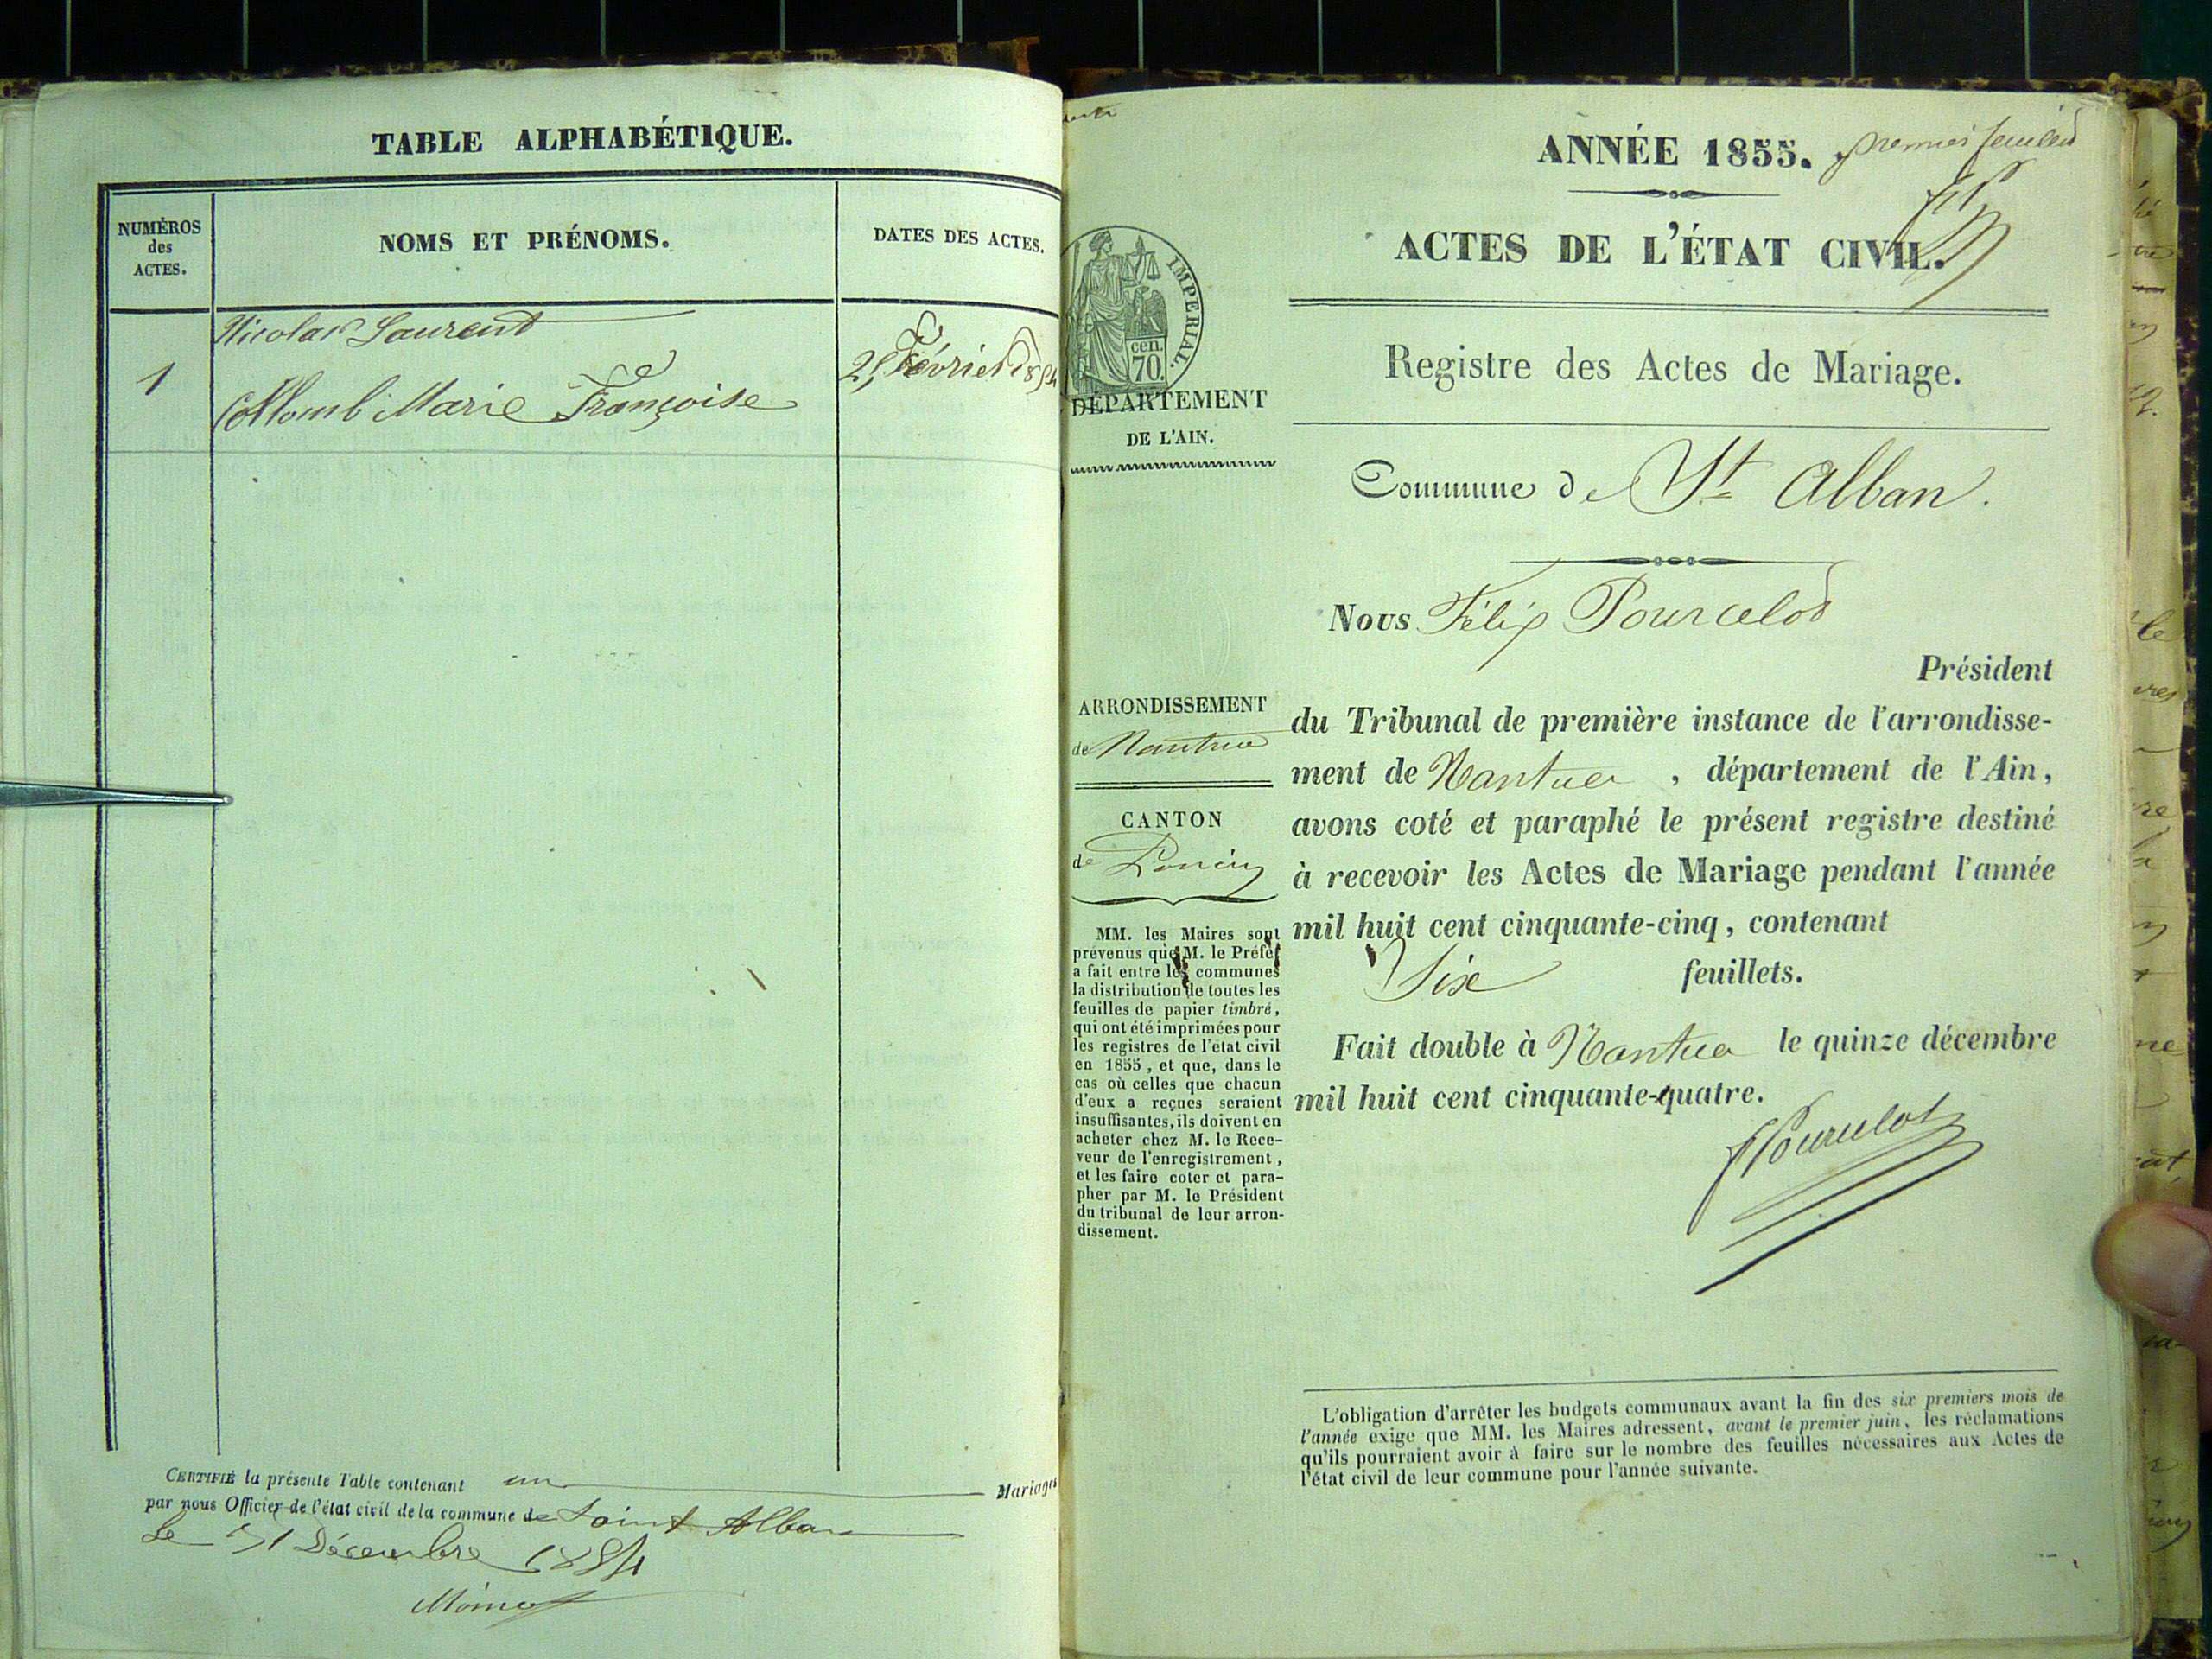 TABLE ALPHABÉTIQUE.
NUMÉROS
des
ACTES.
NOMS ET PRÉNOMS.
DATES DES ACTES.
Nicolas Laurent
1
Collomb Marie Françoise
Février 1854
CERTIFIÉ la présente Table contenant un Mariages
par nous Officier de l'état civil de la commune de Saint Alban
Le 31 Décembre 1854
ANNÉE 1855.
premier feuillet
ACTES DE L'ÉTAT CIVIL.
IMPERIAL.
cen.
70.
DÉPARTEMENT
DE L'AIN.
Registre des Actes de Mariage.
Commune de St Alban.
Nous Félix Pourcelot
Président
du Tribunal de première instance de l'arrondisse-
ment de Nantua, département de l'Ain,
avons coté et paraphé le présent registre destiné
à recevoir les Actes de Mariage pendant l'année
mil huit cent cinquante-cinq, contenant
Six feuillets.
Fait double à Nantua le quinze décembre
mil huit cent cinquante-quatre.
FPourcelot
ARRONDISSEMENT
de Nantua
CANTON
de Poncin
MM. les Maires sont
prévenus que M. le Préfet
a fait entre les communes
la distribution de toutes les
feuilles de papier timbré,
qui ont été imprimées pour
les registres de l'état civil
en 1855, et que, dans le
cas où celles que chacun
d'eux a reçues seraient
insuffisantes, ils doivent en
acheter chez M. le Rece-
veur de l'enregistrement,
et les faire coter et para-
pher par M. le Président
du tribunal de leur arron-
dissement.
L'obligation d'arrêter les budgets communaux avant la fin des six premiers mois de
l'année exige que MM. les Maires adressent, avant le premier juin, les réclamations
qu'ils pourraient avoir à faire sur le nombre des feuilles nécessaires aux Actes de
l'état civil de leur commune pour l'année suivante.